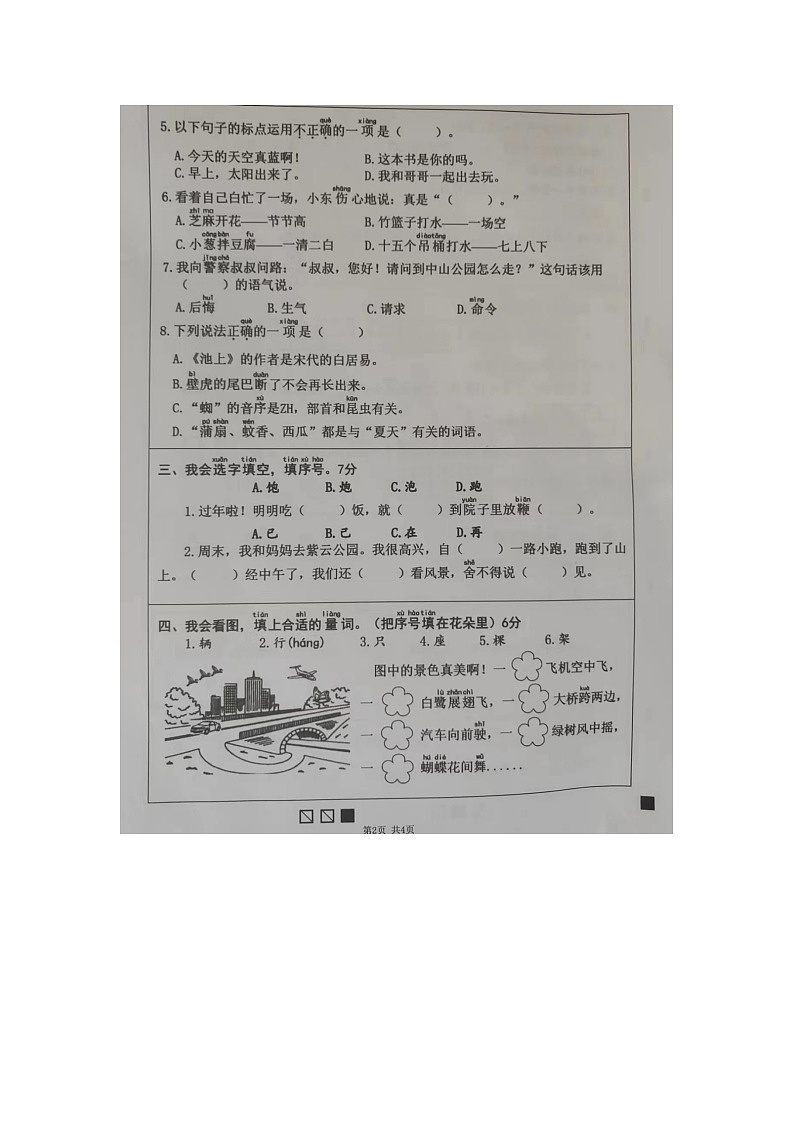 5.以下句子的标点运用不正确(què)的一项(xiàng)是（　　）。
A.今天的天空真蓝啊！　B.这本书是你的吗。
C.早上，太阳出来了。　D.我和哥哥一起出去玩。
6.看着自己白忙了一场，小东伤(shāng)心地说：真是“（　　）。”
A.芝麻(zhī ma)开花——节节高　B.竹篮子打水——一场空
C.小葱拌(cōng bàn)豆腐(fu)——一清二白　D.十五个吊桶(diào tǒng)打水——七上八下
7.我向警察(jǐng chá)叔叔问路：“叔叔，您好！请问到中山公园怎么走？”这句话该用
（　　）的语气说。
A.后悔(huǐ)　B.生气　C.请求　D.命(mìng)令
8.下列说法正确(què)的一项(xiàng)是（　　）
A.《池上》的作者是宋代的白居易。
B.壁(bì)虎的尾巴断(duàn)了不会再长出来。
C.“蜘”的音序(xù)是ZH，部首和昆(kūn)虫有关。
D.“蒲扇(pú shàn)、蚊(wén)香、西瓜”都是与“夏天”有关的词语。
三、我会选(xuǎn)字填(tián)空，填序号(tián xù hào)。7分
A.饱　B.炮　C.泡　D.跑
1.过年啦！明明吃（　　）饭，就（　　）到院(yuàn)子里放鞭(biān)（　　）。
A.已　B.己　C.在　D.再
2.周末，我和妈妈去紫云公园。我很高兴，自（　　）一路小跑，跑到了山
上。（　　）经中午了，我们还（　　）看风景，舍(shě)不得说（　　）见。
四、我会看图，填(tián)上合适(shì)的量(liàng)词。（把序号填(xù hào tián)在花朵里）6分
1.辆　2.行(háng)　3.只　4.座　5.棵　6.架
图中的景色真美啊！一　飞机空中飞，
一　白鹭展翅(lù zhǎn chì)飞，一　大桥跨(kuà)两边，
一　汽车向前驶(shǐ)，一　绿树风中摇，
一　蝴蝶(hú dié)花间舞(wǔ)......
第2页 共4页